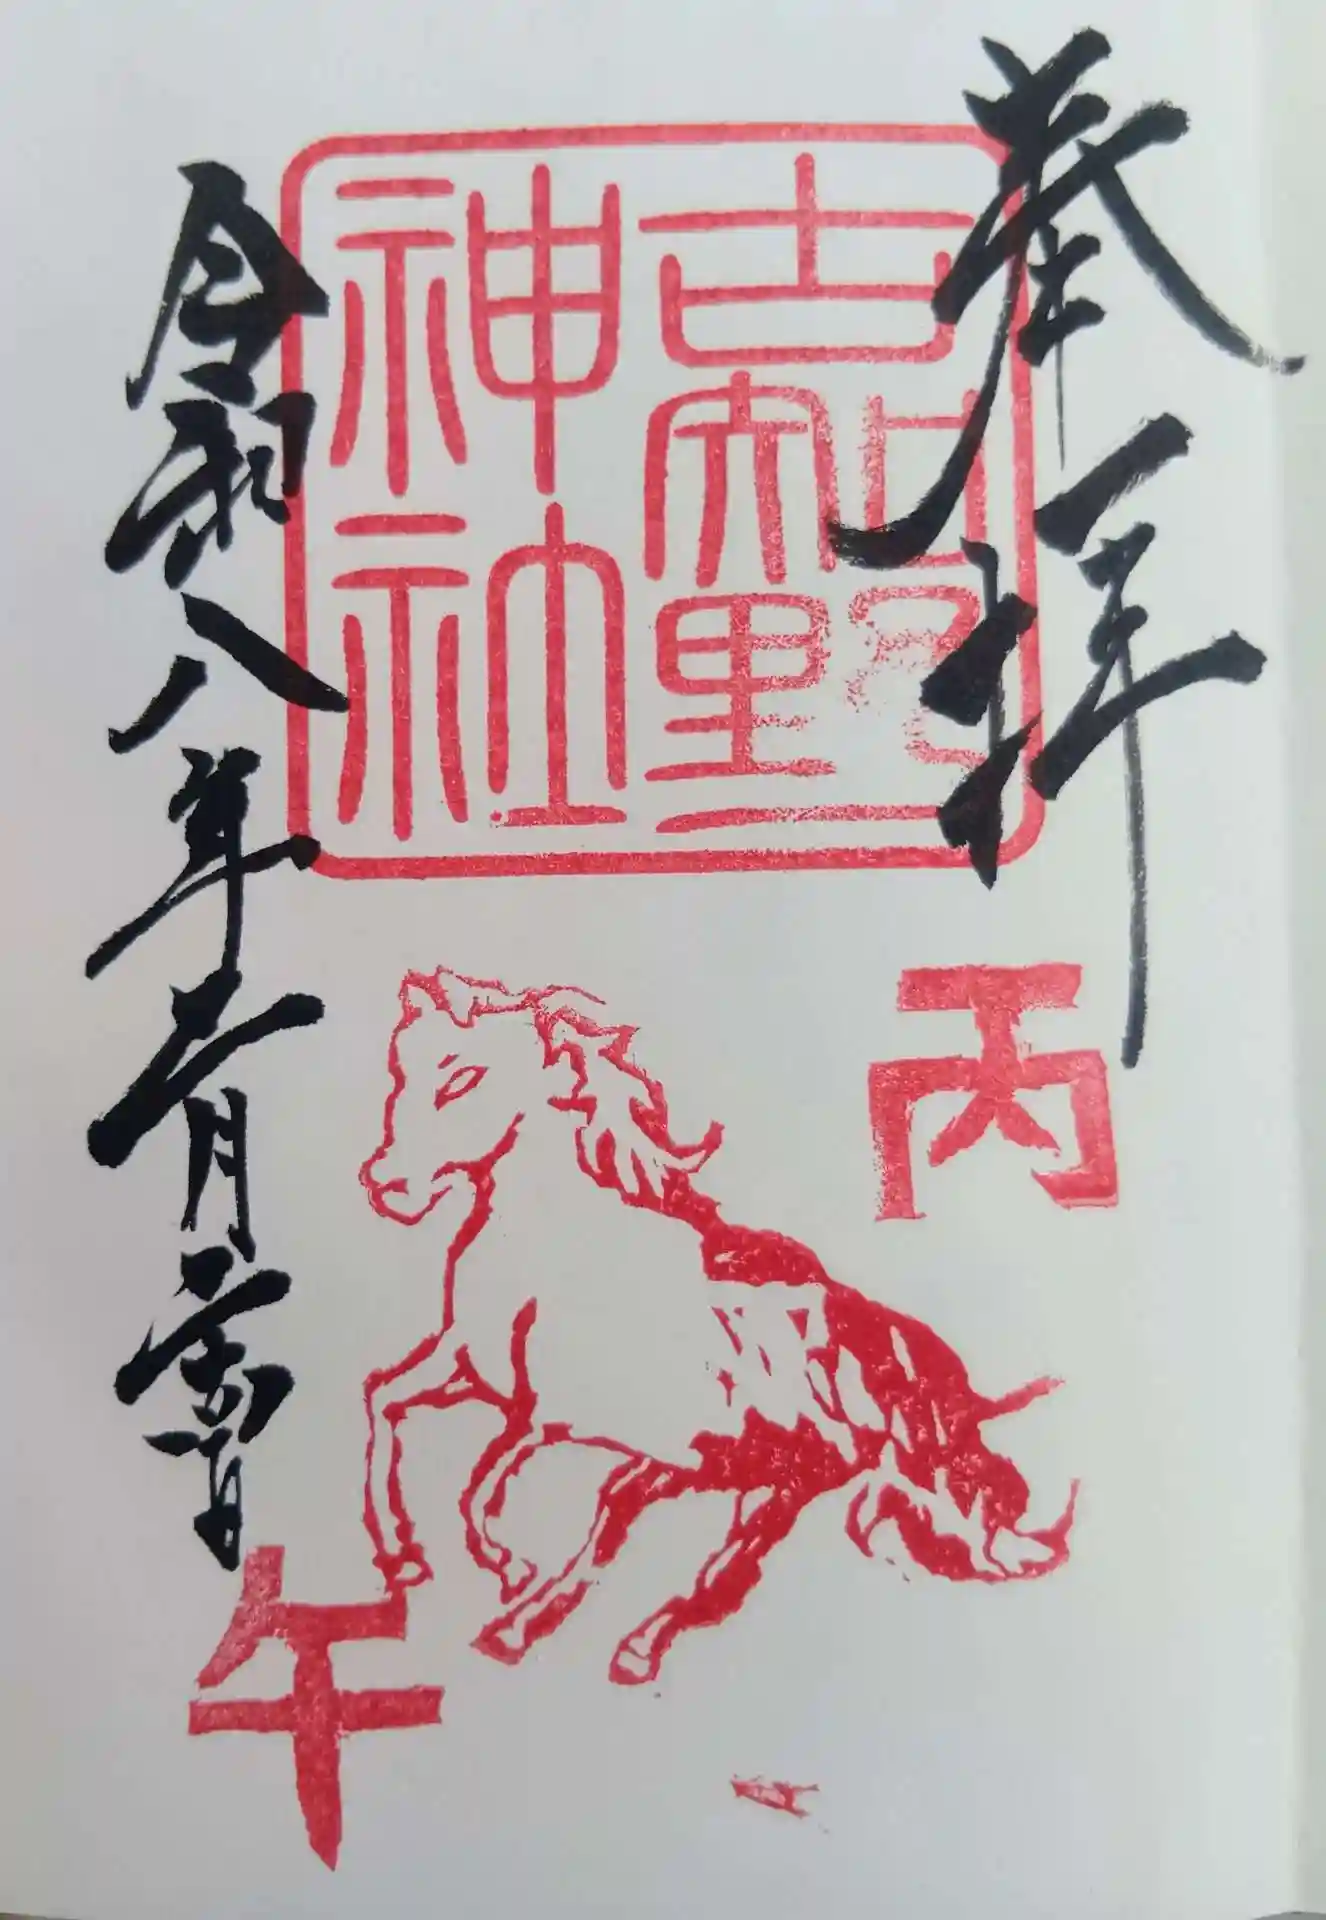 奉拝
古知野
神社
令和八年 月 日
丙
午